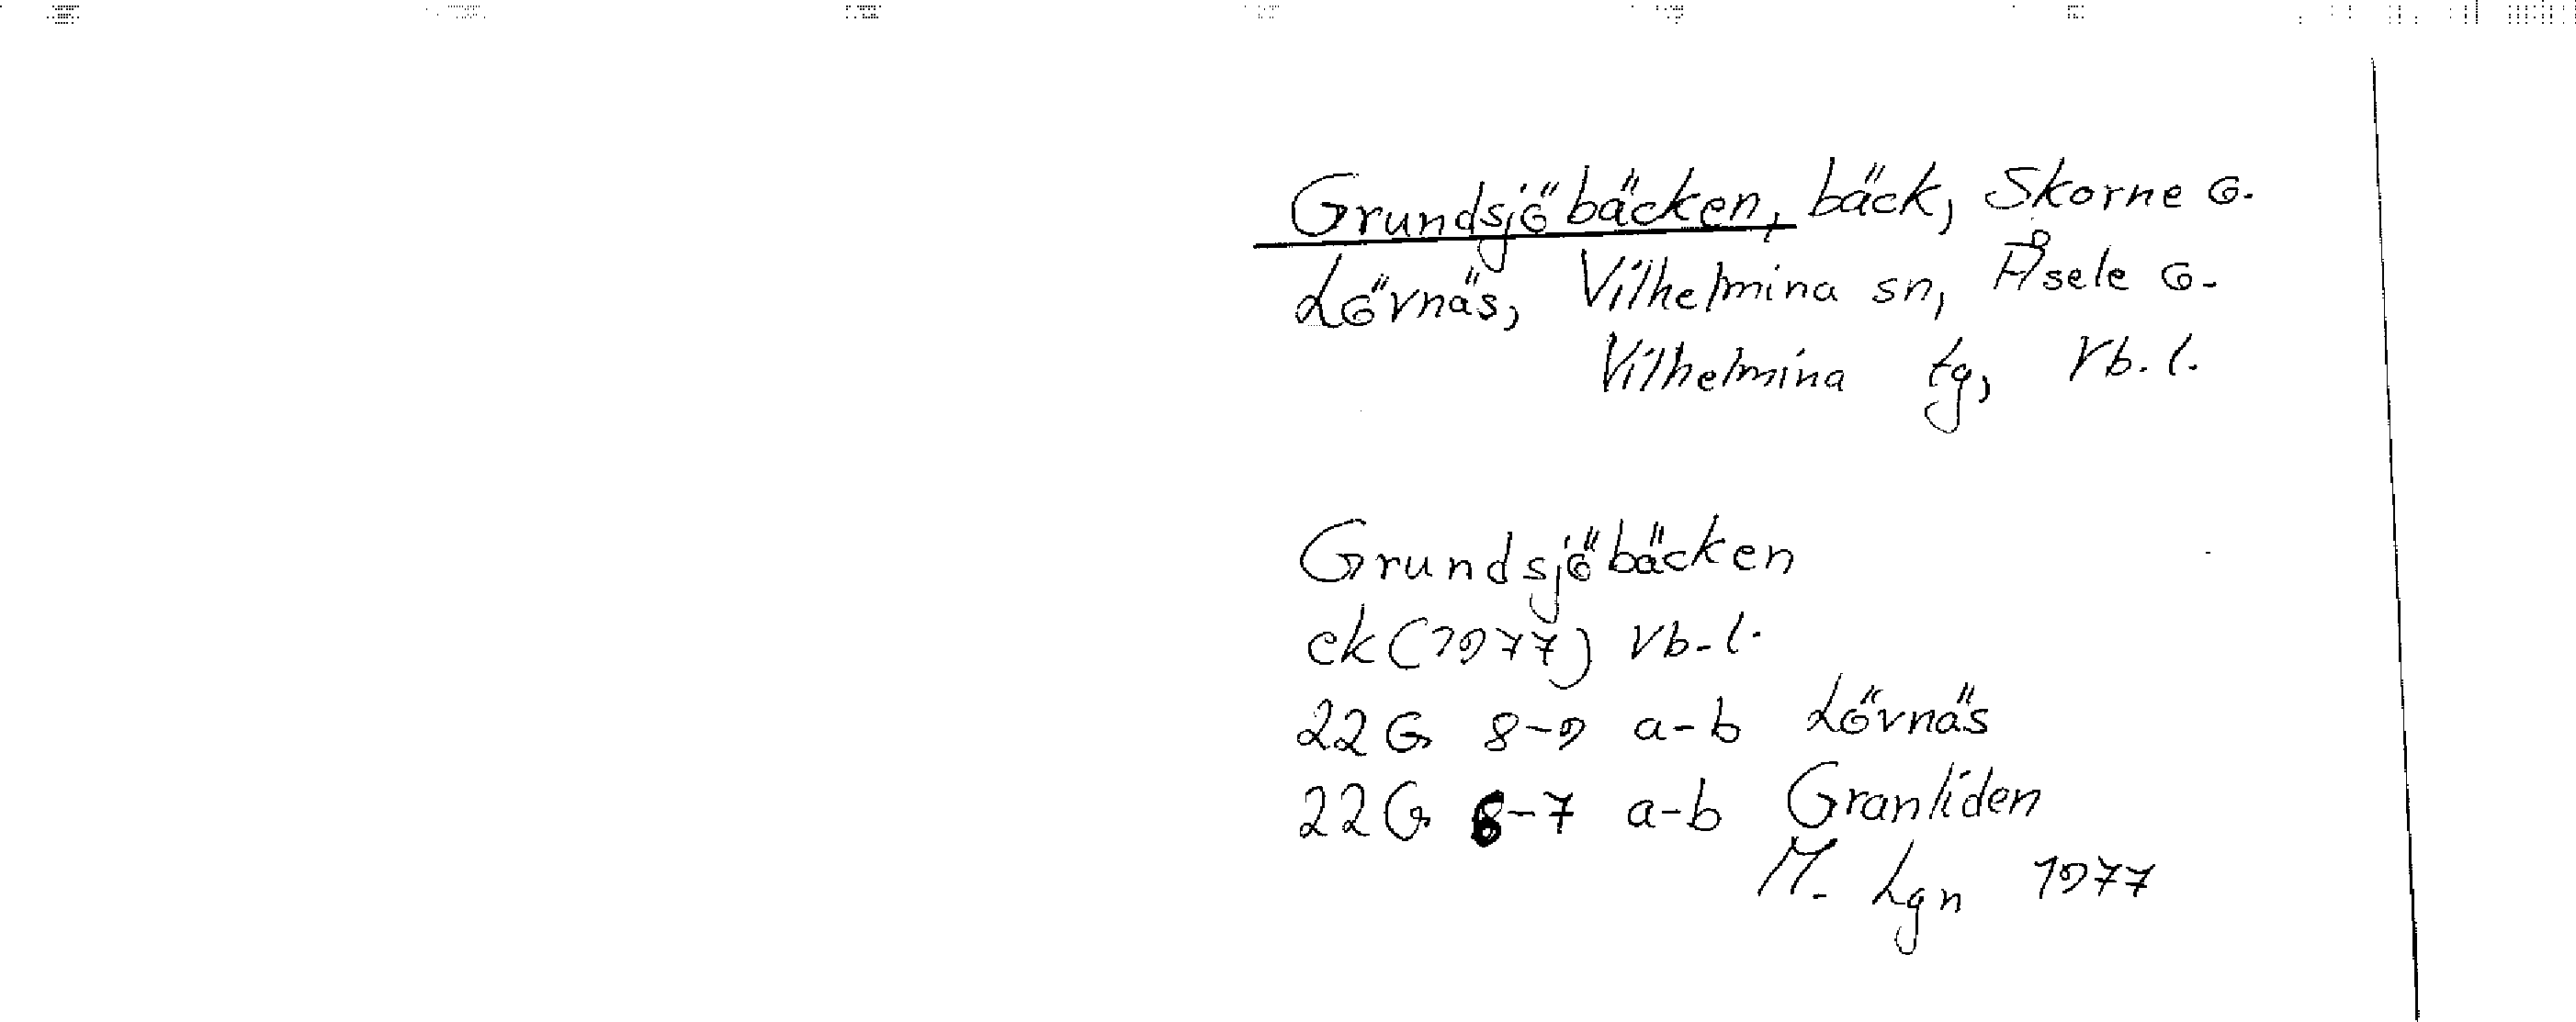 Grundsjöbäcken, bäck, Skorne o.
Lövnäs, Vilhelmina sn, Åsele o.
Vilhelmina tg, Vb. l.
Grundsjöbäcken
ek (1977) Vb. l.
22G 8-9 a-b Lövnäs
22G 6-7 a-b Granliden
M. Lgn 1977